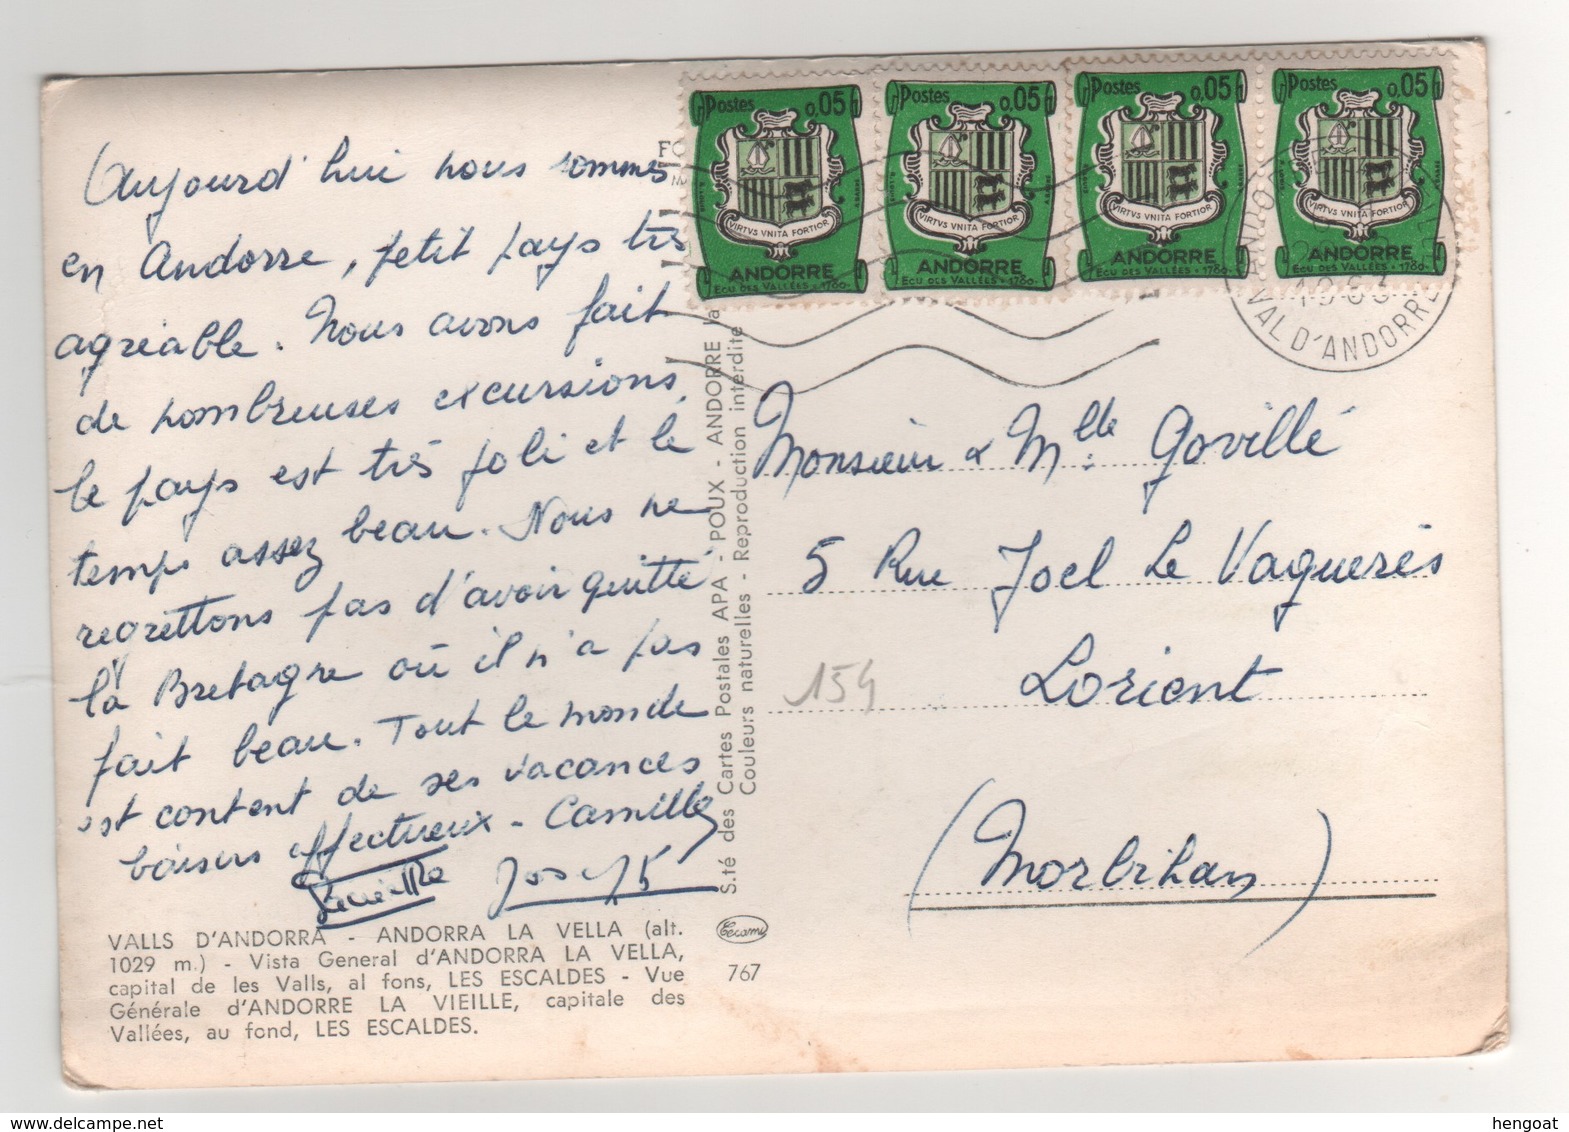 Aujourd'hui nous sommes
en Andorre, petit pays très
agréable. Nous avons fait
de nombreuses excursions,
le pays est très joli et le
temps assez beau. Nous ne
regrettons pas d'avoir quitté
la Bretagne où il n'a pas
fait beau. Tout le monde
est content de ses vacances
baisers affectueux - Camille
Joseph
VALLS D'ANDORRA - ANDORRA LA VELLA (alt.
1029 m.) - Vista General d'ANDORRA LA VELLA,
capital de les Valls, al fons, LES ESCALDES - Vue
Générale d'ANDORRE LA VIEILLE, capitale des
Vallées, au fond, LES ESCALDES.
S.té des Cartes Postales APA - POUX - ANDORRE la
Couleurs naturelles - Reproduction interdite
767
Postes 0,05
VIRTVS VNITA FORTIOR
ANDORRE
ECU DES VALLÉES - 1760-
Postes 0,05
VIRTVS VNITA FORTIOR
ANDORRE
ECU DES VALLÉES - 1760-
Postes 0,05
VIRTVS VNITA FORTIOR
ANDORRE
ECU DES VALLÉES - 1760-
Postes 0,05
VIRTVS VNITA FORTIOR
ANDORRE
ECU DES VALLÉES - 1760-
VAL D'ANDORRE
Monsieur & Mlle Govillé
5 Rue Joel Le Vaguerès
Lorient
154
(Morbihan)
www.delcampe.net
hengoat